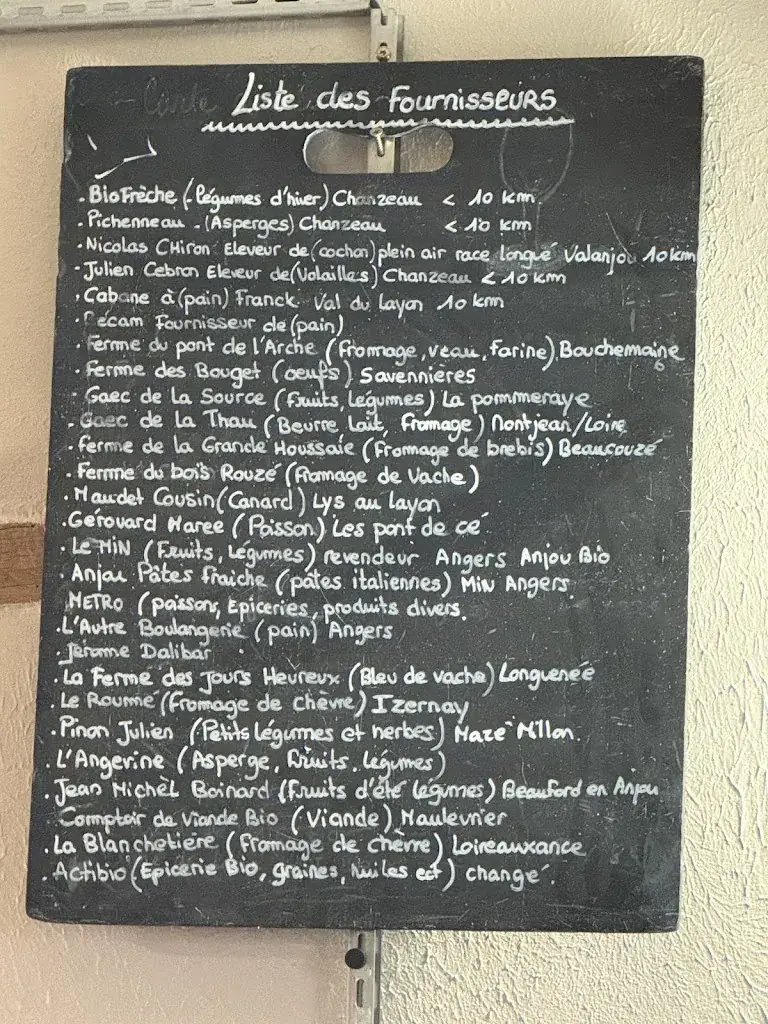 Carte
Liste des Fournisseurs
. BioFrèche (légumes d'hiver) Chanzeau < 10 km.
. Pichenneau - (Asperges) Chanzeau < 10 km
. Nicolas CHiron Eleveur de (cochon) plein air race longué Valanjou 10 km
- Julien Cebron Eleveur de (Volailles) Chanzeau < 10 km
. Cabane à (pain) Franck Val du layon 10 km
. Pécam Fournisseur de (pain)
. Ferme du pont de l'Arche (Fromage, veau, Farine) Bouchemaine
. Ferme des Bouget (oeufs) Savennières
. Gaec de la Source (Fruits, légumes) La pommeraye
. Gaec de la Thau (Beurre Lait, Fromage) Montjean/Loire
. Ferme de la Grande Houssaie (Fromage de brebis) Beaucouzé
. Ferme du bois Rouzé (Fromage de Vache)
. Maudet Cousin (Canard) Lys au layon
. Gérouard Maree (Poisson) Les pont de cé
. Le MiN (Fruits, Légumes) revendeur Angers Anjou Bio
. Anjou Pâtes fraiche (pâtes italiennes) Min Angers.
METRO (poissons, Epiceries, produits divers.
. L'Autre Boulangerie (pain) Angers
. Jérome Dalibar
. La Ferme des Jours Heureux (Bleu de vache) Longuenée
. Le Roumé (Fromage de chèvre) Izernay
. Pinon Julien (Petits légumes et herbes) Mazé Millon.
. L'Angevine (Asperge, Fruits, légumes)
. Jean Michèl Boinard (Fruits d'été légumes) Beauford en Anjou
Comptoir de Viande Bio (Viande) Maulevrier
. La Blanchetière (Fromage de chèvre) Loireauxance
. Actibio (Epicerie Bio, graines, huiles ect) changé.